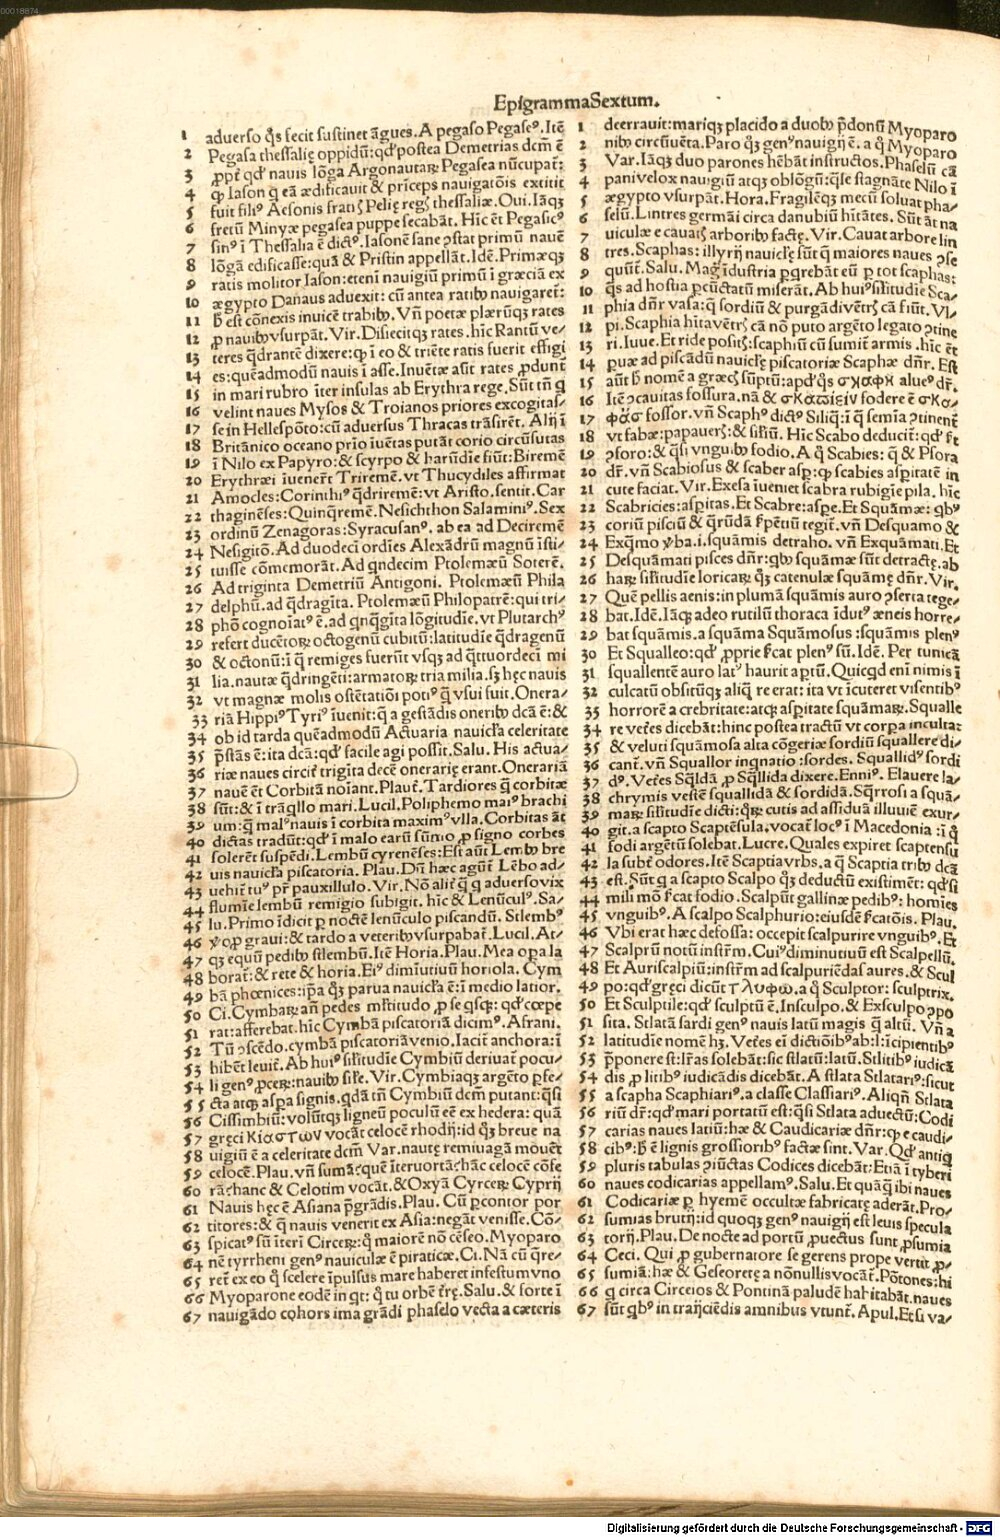 00018874
EpigrammaSextum.
1 aduerso q̃s fecit sustinet ãgues. A pegaso Pegaseꝰ. Itẽ
2 Pegasa thessalię oppidũ: qđ postea Demetrias dcm̃ ẽ
3 ꝓpr̃ qđ nauis lõga Argonautaꝝ Pegasea nũcupat̃:
4 ꝙ Iason q̃ eã ædificauit & prĩceps nauigatõis extitit
5 fuit filiꝰ Aesonis Pelię regꝭ thessaliæ. Oui. Iãqꝫ
6 fretũ Minyæ pegasea puppe secabãt. Hic ẽt Pegasicꝰ
7 sinꝰ ĩ Thessalia ẽ dictꝰ. Iasonẽ sane ꝯstat primũ nauẽ
8 lõgã edificasse: quã & Pristin appellãt. Idẽ. Primæqꝫ
9 ratis molitor Iason: etenĩ nauigiũ primũ ĩ græciã ex
10 ægypto Danaus aduexit: cũ antea ratibꝰ nauigaret̃:
11 ħ est cõnexis inuicẽ trabibꝰ. Vñ poetæ plærũqꝫ rates
12 ꝓ nauibꝰ vsurpãt. Vir. Disiecitqꝫ rates. hĩc Rantũ ve⸗
13 teres q̃drantẽ dixere: ꝙ ĩ eo & triẽte ratis fuerit effigi
14 es: quẽadmodũ nauis ĩ asse. Inuẽtæ aũt rates ꝓdunt̃
15 in mari rubro ĩter insulas ab Erythra rege. Sũt tñ q̃
16 velint naues Mysos & Troianos priores excogitas⸗
17 se in Hellespõto: cũ aduersus Thracas trãsirẽt. Alij ĩ
18 Britãnico oceano prĩo iuẽtas putãt corio circũsutas
19 ĩ Nilo ex Papyro: & scyrpo & harũdie fiũt: Biremẽ
20 Erythræi iuenert̃ Triremẽ. vt Thucydiles affirmat
21 Amocles: Corinthiꝰ q̃driremẽ: vt Aristo. sentit. Car
22 thaginẽses: Quinq̃remẽ. Nesichthon Salaminiꝰ. Sex
23 ordinũ Zenagoras: Syracusanꝰ. ab ea ad Deciremẽ
24 Nesigitõ. Ad duodecĩ ordĩes Alexãdrũ magnũ ĩsti⸗
25 tuisse cõmemorãt. Ad qndecim Ptolemæũ Soterẽ.
26 Ad triginta Demetriũ Antigoni. Ptolemæũ Phila
27 delphũ. ad q̃dragĩta. Ptolemæũ Philopatrẽ: qui tri⸗
28 phõ cognoĩatꝰ ẽ. ad qnq̃gĩta lõgitudĩe. vt Plutarchꝰ
29 refert ducẽtoꝝ octogenũ cubitũ: latitudĩe q̃dragenũ
30 & octonũ: ĩ q̃ remiges fuerũt vsqꝫ ad q̃ttuordeci mi
31 lia. nautæ q̃dringẽti: armatoꝝ tria milia. sꝫ hęc nauis
32 vt magnæ molis ostẽtatiõi potiꝰ q̃ vsui fuit. Onera⸗
33 riã Hippiꝰ Tyriꝰ iuenit: q̃ a gestãdis oneribꝰ dcã ẽ: &
34 ob id tarda quẽadmodũ Actuaria nauicl̃a celeritate
35 p̃stãs ẽ: ita dcã: qđ facile agi possit. Salu. His actua⸗
36 riæ naues circit̃ trigĩta decẽ onerarię erant. Onerariã
37 nauẽ ẽt Corbitã noĩant. Plaut̃. Tardiores q̃ corbitæ
38 sũt: & ĩ trãqllo mari. Lucil. Poliphemo maiꝰ brachi
39 um: q̃ malꝰ nauis ĩ corbita maximꝰ vlla. Corbitas ãt
40 dictas tradũt: qđ ĩ malo earũ sũmo ꝓ signo corbes
41 solerẽt suspẽdi. Lembũ cyrenẽses: Est aũt Lembꝰ bre
42 uis nauicl̃a piscatoria. Plau. Dũ hæc agũt̃ Lẽbo ad⸗
43 uehit̃ tuꝰ pr̃ pauxillulo. Vir. Nõ alit̃ q̃ q aduerso vix
44 flumĩe lembũ remigio subigit. hĩc & Lenũculꝰ. Sa⸗
45 lu. Primo ĩdicit p nocte lenũculo piscandũ. Stlembꝰ
46 ꝟo ꝓ graui: & tardo a veteribꝰ vsurpabat̃. Lucil. At⸗
47 qꝫ equũ pedibꝰ stlembũ. Itẽ Horia. Plau. Mea opa la
48 borat̃: & rete & horia. Eiꝰ dimĩutiuũ horiola. Cym
49 bã phœnices: ip̃a q̃ꝫ parua nauicl̃a ẽ: ĩ medio latior.
50 Ci. Cymbaꝝ añ pedes ml̃titudo ꝓ se qsqꝫ: qđ cœpe
51 rat: afferebat. hĩc Cymbã piscatoriã dicimꝰ. Afrani.
52 Tũ ꝯscẽdo. cymbã piscatoriã venio. Iacit̃ anchora: ĩ
53 hibẽt leuit̃. Ab huiꝰ sil̃itudĩe Cymbiũ deriuat̃ pocu⸗
54 li genꝰ ꝓceꝝ: nauibꝰ sil̃e. Vir. Cymbiaqꝫ argẽto pfe⸗
55 cta atqꝫ aspa signis. qdã tñ Cymbiũ dcm̃ putant: q̃si
56 Cissimbiũ: volũtqꝫ ligneũ poculũ eẽ ex hedera: quã
57 gręci κιαστων vocãt celocẽ rhodij: id q̃ꝫ breue na
58 uigiũ ẽ a celeritate dcm̃ Var. nautę remiuagã mouẽt
59 celocẽ. Plau. vñ sumãc quẽ ĩteruortã: hãc celocẽ cõfe
60 rã: hanc & Celotim vocãt. & Oxyã Cyrceꝝ Cyprij
61 Nauis hęc ẽ Asiana p̃grãdis. Plau. Cũ pcontor por
62 titores: & q̃ nauis venerit ex Asia: negãt venisse. Cõ⸗
63 spicatꝰ sũ ĩterĩ Circeꝝ: q̃ maiorẽ nõ cẽseo. Myoparo
64 nẽ tyrrheni genꝰ nauiculæ ẽ piraticæ. Ci. Nã cũ q̃re⸗
65 ret̃ ex eo q̃ scelere ĩpulsus mare haberet infestum vno
66 Myoparone eodẽ in qt: q̃ tu orbẽ tr̃ę. Salu. & sorte ĩ
67 nauigãdo cohors ima grãdi phaselo vecta a cæteris
1 deerrauit: mariqꝫ placido a duobꝰ p̃donũ Myoparo
2 nibꝰ circũuẽta. Paro q̃ꝫ genꝰ nauigij ẽ. a q̃ Myoparo
3 Var. Iãqꝫ duo parones hẽbãt instructos. Phaselũ cã
4 panivelox nauigiũ atqꝫ oblõgũ: q̃le stagnãte Nilo ĩ
5 ægypto vsurpãt. Hora. Fragilẽqꝫ mecũ soluat pha⸗
6 selũ. Lintres germãi circa danubiũ hĩtãtes. Sũt ãt na
7 uiculæ e cauatꝭ arboribꝰ factę. Vir. Cauat arbore lin
8 tres. Scaphas: illyrij nauicl̃ę sũt q̃ maiores naues ꝯse
9 quũt̃. Salu. Magꝭ ĩdustria pq̃rebãt eũ p tot scaphas:
10 q̃s ad hostia pcũctatũ miserãt. Ab huiꝰ sil̃itudĩe Sca⸗
11 phia dñr vasa: q̃ sordiũ & purgãdi vẽtrꝭ cã fiũt. Vl⸗
12 pi. Scaphia hĩta vẽtrꝭ cã nõ puto argẽto legato ꝯtine
13 ri. Iuue. Et ride positꝭ: scaphiũ cũ sumit̃ armis. hĩc ẽt
14 puæ ad piscãdũ nauicl̃ę piscatoriæ Scaphæ dñr. Est
15 aũt ħ nomẽ a græcꝭ sũptũ: apđ q̃s σκαφη alueꝰ dr̃.
16 Itẽ ꝯcauitas fossura. nã & σκαπτειν fodere ẽ σκα⸗
17 φας fossor. vñ Scaphꝰ dictꝰ Siliq̃: ĩ q̃ semĩa ꝯtinent̃
18 vt fabæ: papauerꝭ: & sil̃iũ. Hĩc Scabo deducit̃: qđ ẽt
19 ꝯforo: & q̃si vnguibꝰ fodio. A q̃ Scabies: q̃ & Psora
20 dr̃. vñ Scabiosus & scaber asp: ꝙ scabies asp̃itatẽ in
21 cute faciat. Vir. Exesa ĩueniet scabra rubigĩe pila. hĩc
22 Scabricies: asp̃itas. Et Scabre: aspe. Et Squãmæ: qbꝰ
23 coriũ pisciũ & q̃rũdã s̃pẽtiũ tegit̃. vñ Desquamo &
24 Exq̃mo ꝟba. i. squãmis detraho. vñ Exquãmati. Et
25 Desquãmati pisces dñr: qbꝰ squãmæ sũt detractę. ab
26 haꝝ sil̃itudĩe loricaꝝ q̃ꝫ catenulæ squãmę dñr. Vir.
27 Quẽ pellis aenis: in plumã squãmis auro ꝯserta tege⸗
28 bat. Idẽ. Iãqꝫ adeo rutilũ thoraca ĩdutꝰ æneis horre⸗
29 bat squãmis. a squãma Squãmosus: squãmis plenꝰ
30 Et Squalleo: qđ ꝓprie s̃cat plenꝰ sũ. Idẽ. Per tunicã
31 squallentẽ auro latꝰ haurit aptũ. Quicqd enĩ nimis ĩ
32 culcatũ obsitũqꝫ aliq̃ re erat: ita vt ĩcuteret visentibꝰ
33 horrorẽ a crebritate: atqꝫ asp̃itate squãmaꝝ. Squalle
34 re vet̃es dicebãt: hinc postea tractũ vt corpa inculta:
35 & veluti squãmosa alta cõgerie sordiũ squallere di⸗
36 cant̃. vñ Squallor inqnatio: sordes. Squallidꝰ sordi
37 dꝰ. Vet̃es Sq̃lidã ꝓ Sq̃llida dixere. Enniꝰ. Elauere la⸗
38 chrymis vestẽ squallidã & sordidã. Sq̃rrosi a squã⸗
39 maꝝ sil̃itudĩe dicti: q̃ꝝ cutis ad assiduã illuuiẽ exur⸗
40 git. a scapto Scaptẽsula. vocat̃ locꝰ ĩ Macedonia: ĩ q̃
41 fodi argẽtũ solebat. Lucre. Quales expiret scaptensu
42 la subt̃ odores. Itẽ Scaptia vrbs. a q̃ Scaptia tribꝰ dcã
43 est. Sũt q a scapto Scalpo q̃ꝫ deductũ existimẽt: qđ si
44 mili mõ s̃cat fodio. Scalpũt gallinæ pedibꝰ: homĩes
45 vnguibꝰ. A scalpo Scalphurio: eiusdẽ s̃catõis. Plau.
46 Vbi erat hæc defossa: occepit scalpurire vnguibꝰ. Et
47 Scalprũ notũ instr̃m. Cuiꝰ diminutiuũ est Scalpellũ.
48 Et Auriscalpiũ: instr̃m ad scalpuriẽdas aures. & Scul
49 po: qđ gręci dicũt γλυφω. a q̃ Sculptor: sculptrix.
50 Et Sculptile: qđ sculptũ ẽ. Insculpo. & Exsculpo ꝯpo
51 sita. Stlatã sardi genꝰ nauis latũ magis q̃ altũ. Vñ a
52 latitudĩe nomẽ hꝫ. Vet̃es eĩ dictiõibꝰ ab: l: ĩcipientibꝰ
53 p̃ponere st: lr̃as solebãt: sic stlatũ: latũ. Stlitibꝰ iudicã
54 dis ꝓ litibꝰ iudicãdis dicebãt. A stlata Stlatariꝰ: sicut
55 a scapha Scaphiariꝰ. a classe Classiariꝰ. Aliqñ Stlata
56 riũ dr̃: qđ mari portatũ est: q̃si Stlata aduectũ: Codi
57 carias naues latiũ: hæ & Caudicariæ dñr: ꝙ e caudi⸗
58 cibꝰ: ħ ẽ lignis grossioribꝰ factæ sint. Var. Qđ antiq
59 pluris tabulas ꝯiũctas Codices dicebãt: Etiã ĩ tyberĩ
60 naues codicarias appellamꝰ. Salu. Et quãq̃ ibi naues
61 Codicariæ p hyemẽ occultæ fabricatę aderãt. Pro⸗
62 sumias brutij: id quoqꝫ genꝰ nauigij est leuis specula
63 torij. Plau. De nocte ad portũ ꝓuectus sunt ꝓsumia
64 Ceci. Qui ꝓ gubernatore se gerens prope vertit ꝓ⸗
65 sumiã: hæ & Geseoretę a nõnullis vocãt̃. Põtones: hi
66 q circa Circeios & Pontinã paludẽ habitabãt. naues
67 sũt qbꝰ in traijciẽdis amnibus vtunt̃. Apul. Et si va⸗
Digitalisierung gefördert durch die Deutsche Forschungsgemeinschaft - DFG